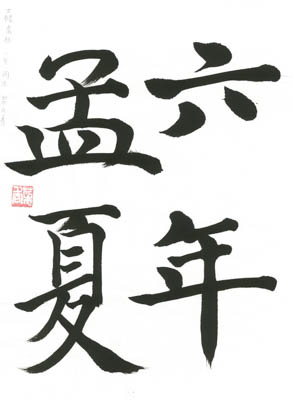 六年
孟夏